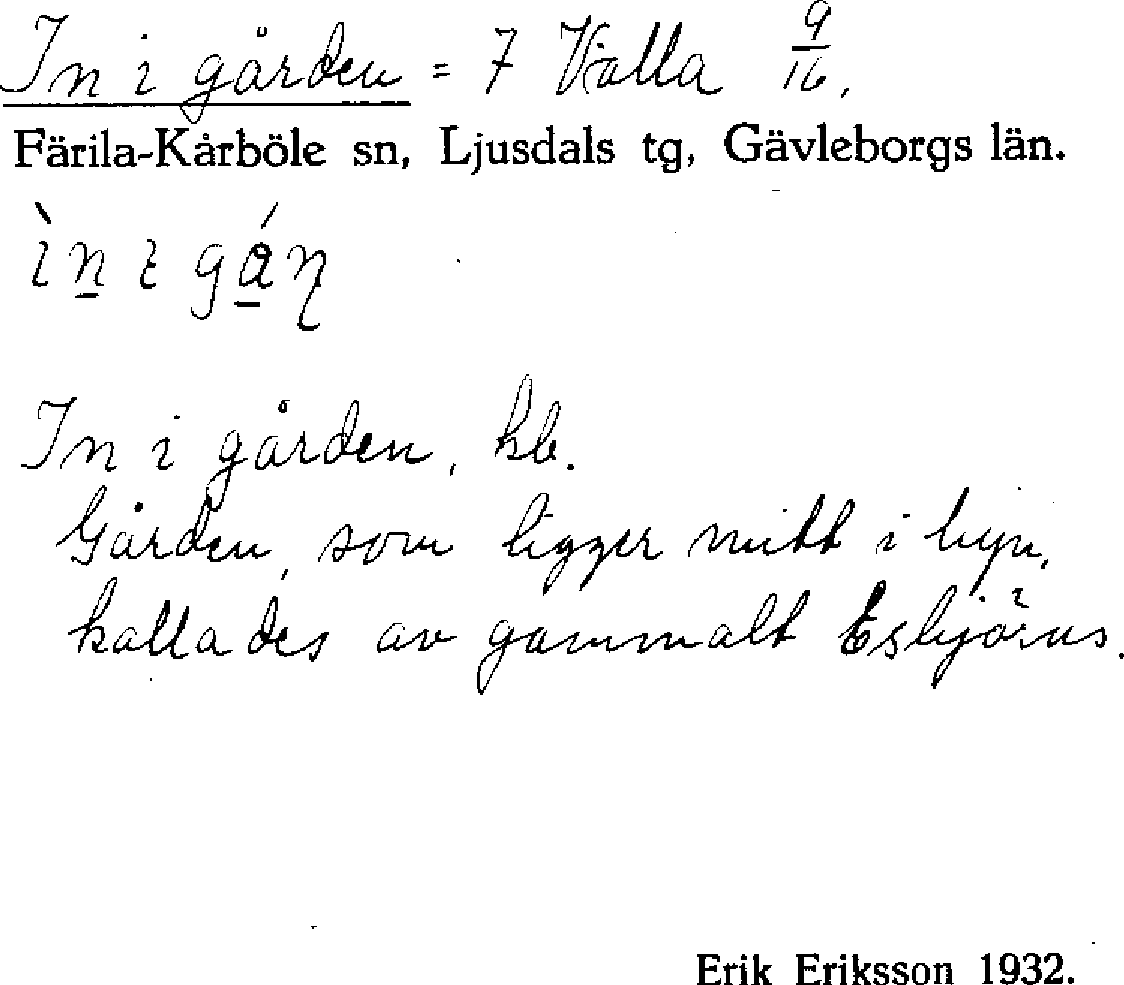 In i gården = 7 Valla 9/16.
Färila-Kårböle sn, Ljusdals tg, Gävleborgs län.
In i gården, hb.
Gården, som ligger mitt i byn,
kallades av gammalt Esbjörns.
Erik Eriksson 1932.